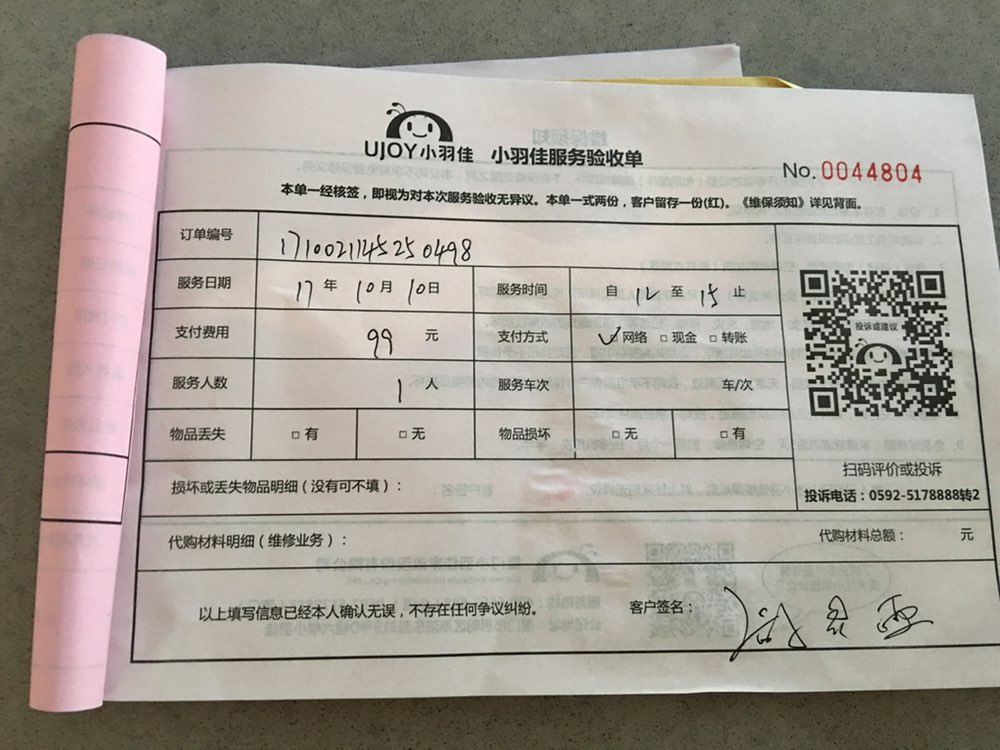 UJOY小羽佳 小羽佳服务验收单
No.0044804
本单一经核签，即视为对本次服务验收无异议。本单一式两份，客户留存一份(红)。《维保须知》详见背面。
订单编号 171002114525 0498
服务日期 17 年 10 月 10 日 服务时间 自 12 至 15 止
支付费用 99 元 支付方式 ✓□网络 □现金 □转账
服务人数 1 人 服务车次 车/次
物品丢失 □有 □无 物品损坏 □无 □有
投诉或建议
扫码评价或投诉
投诉电话：0592-5178888转2
损坏或丢失物品明细（没有可不填）：
代购材料明细（维修业务）： 代购材料总额： 元
以上填写信息已经本人确认无误，不存在任何争议纠纷。 客户签名：